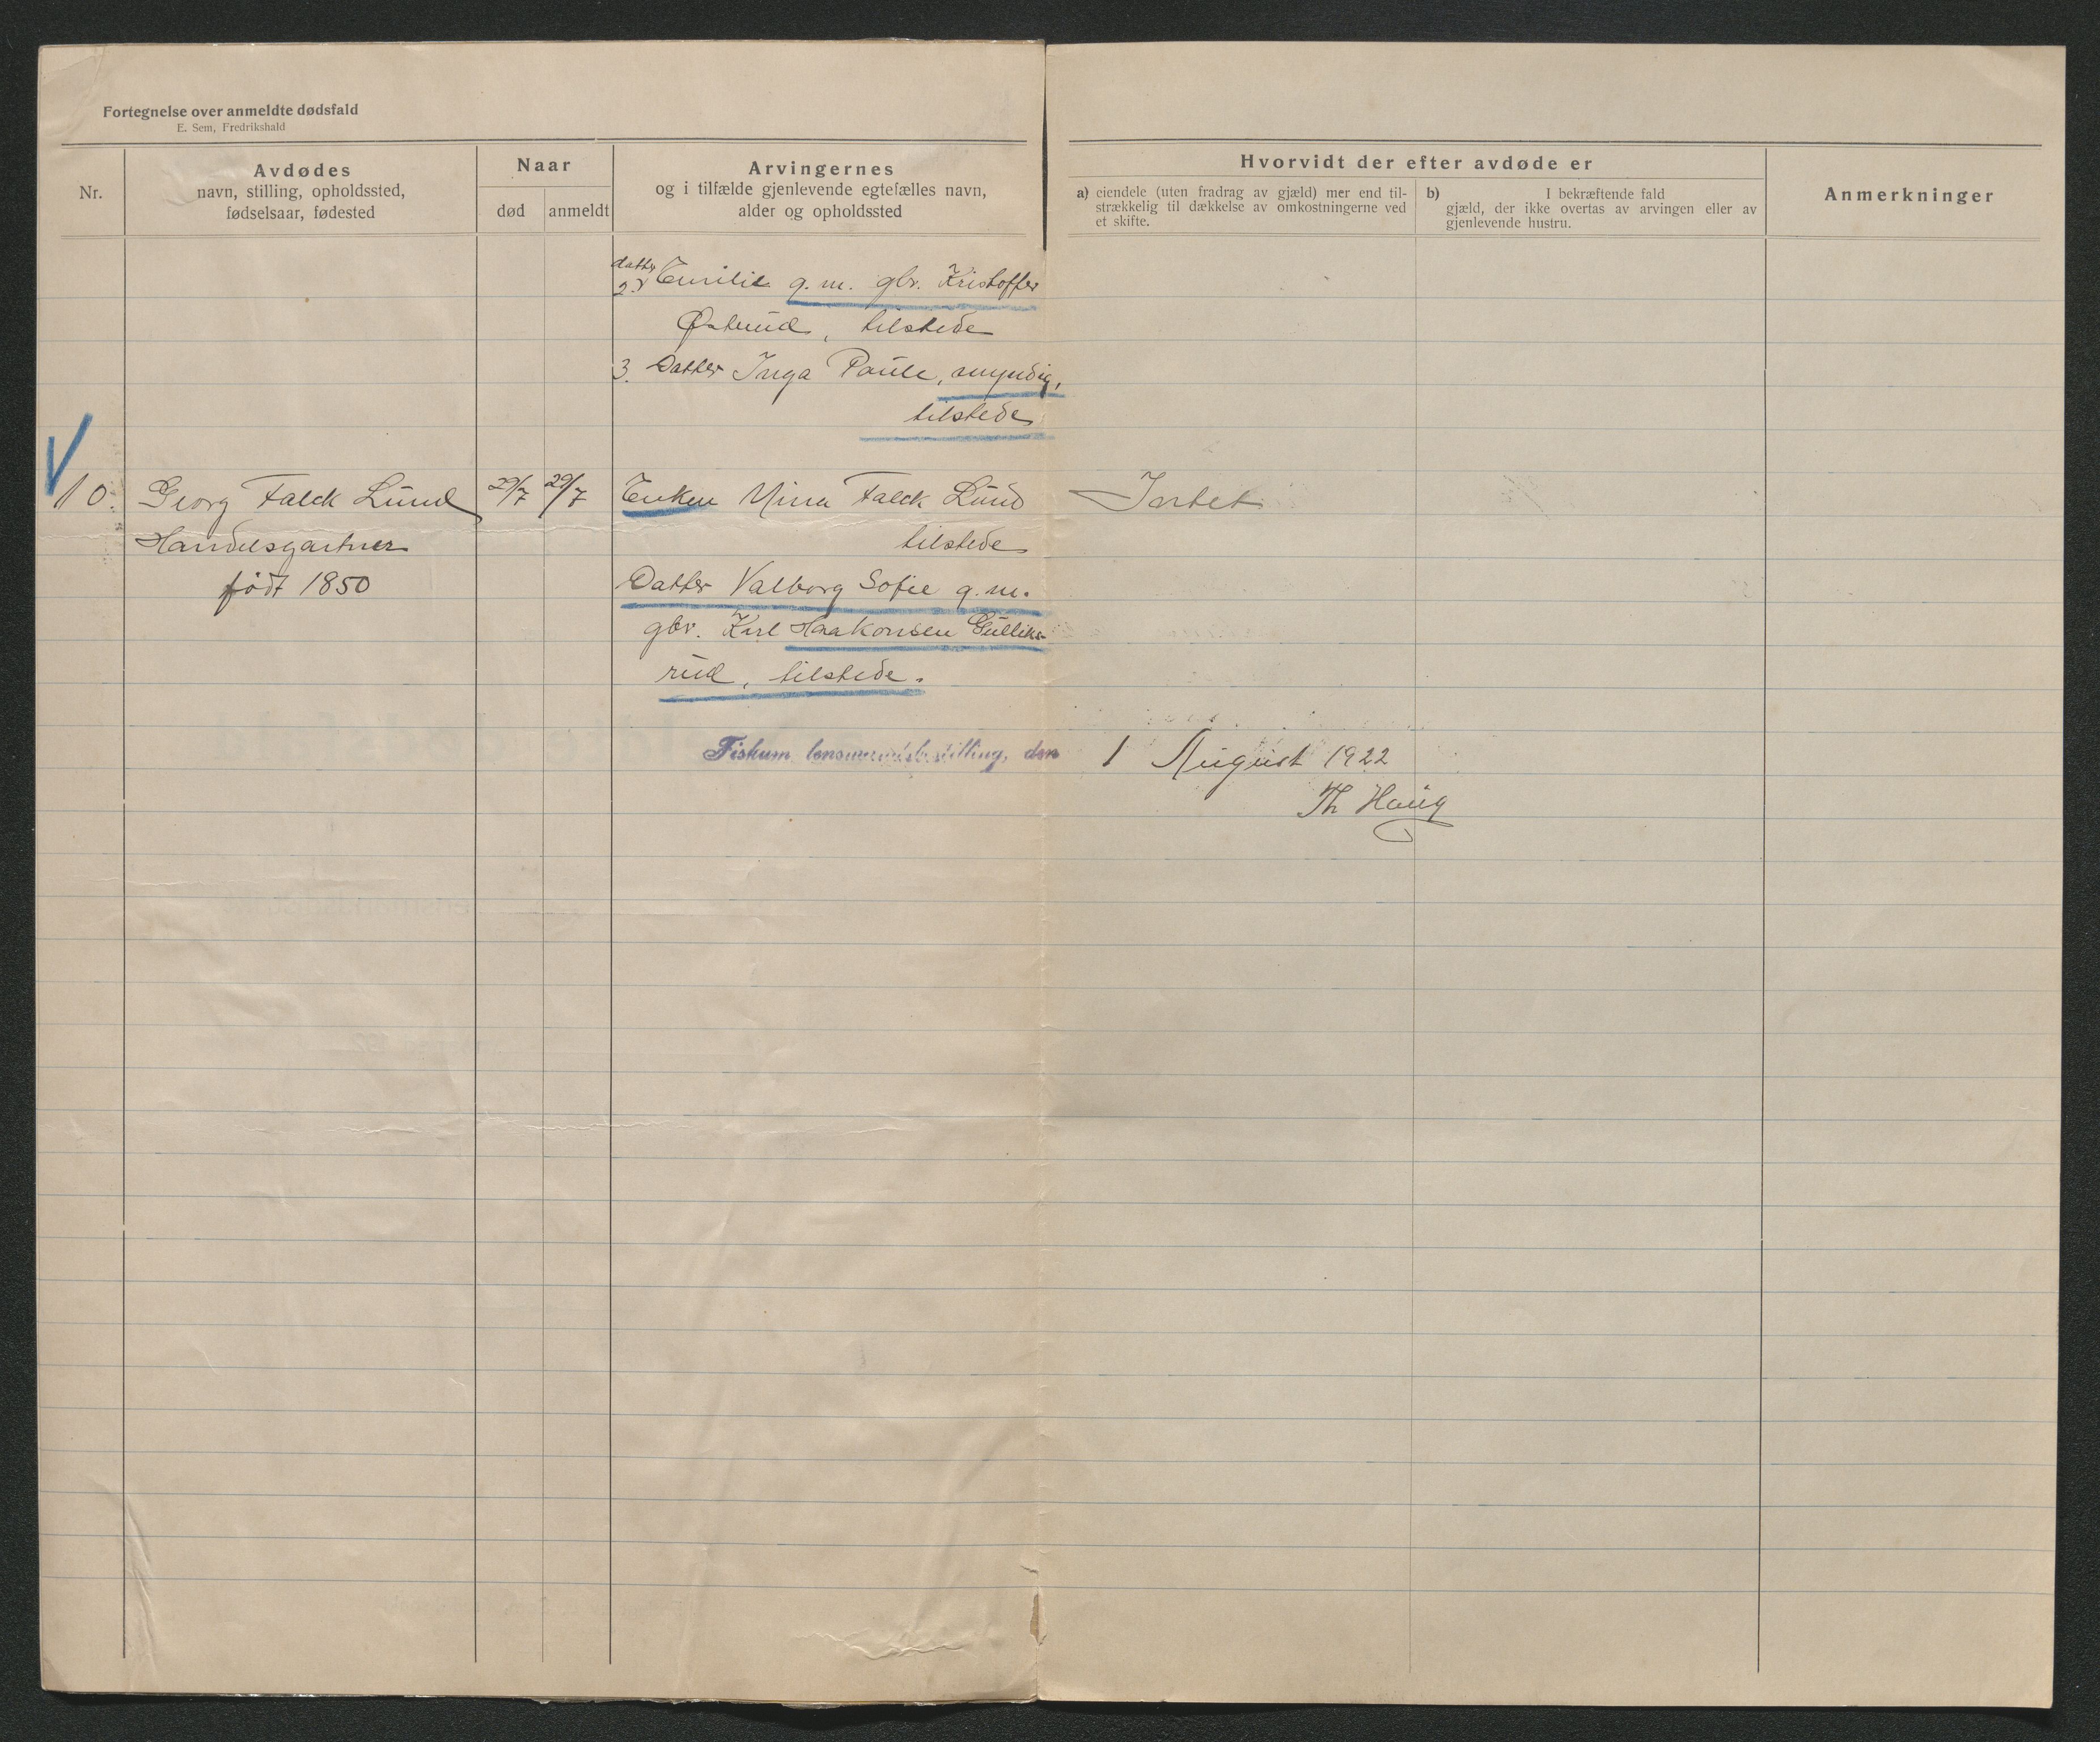 Fortegnelse over anmeldte dødsfald
E. Sem, Fredrikshald
Nr.
Avdødes
navn, stilling, opholdssted,
fødselsaar, fødested
Naar
død
anmeldt
Arvingernes
og i tilfælde gjenlevende egtefælles navn,
alder og opholdssted
Hvorvidt der efter avdøde er
a) eiendele (uten fradrag av gjæld) mer end til-
strækkelig til dækkelse av omkostningerne ved
et skifte.
b) I bekræftende fald
gjæld, der ikke overtas av arvingen eller av
gjenlevende hustru.
Anmerkninger
datter
2. Emilie g.m. gbr. Kristoffer
Østerud, tilstede
3. Datter Inga Paule, umyndig,
tilstede
10. Georg Falck Lund 29/7 29/7 Enken Mina Falck Lund Intet
Handelsgartner tilstede
født 1850 Datter Valborg Sofie g.m.
gbr. Karl Haakonsen Gulliks-
rud, tilstede.
Fiskum lensmandsbestilling, den 1 August 1922
Th Haug